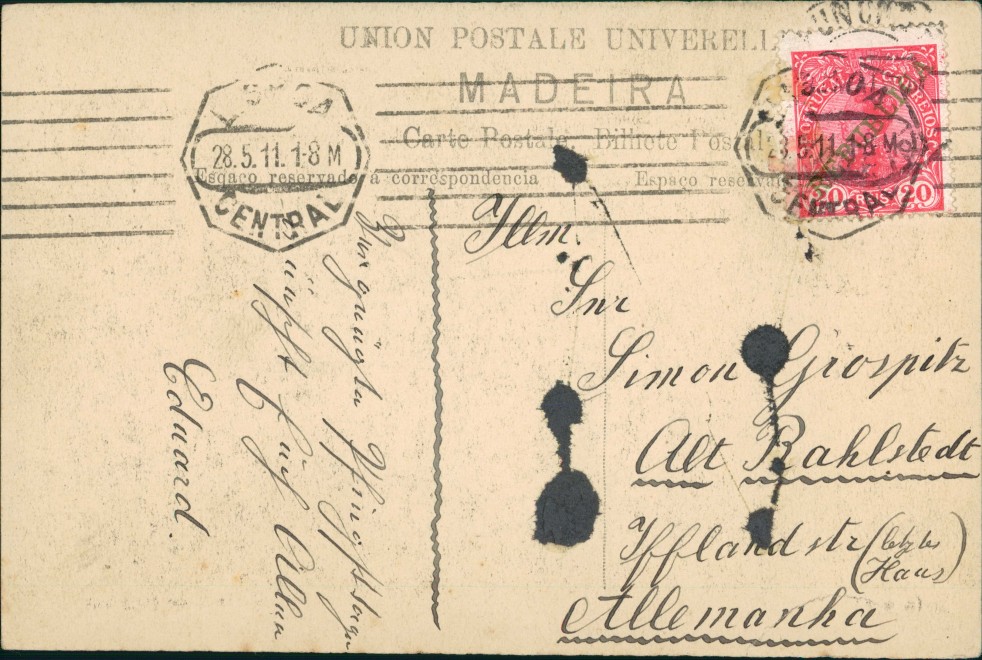 UNION POSTALE UNIVERELL
MADEIRA
Carte Postale. Bilhete Postal
Esqaco reservado a correspondencia
Espaço reserva
28.5.11. 1-8 M
CENTRAL
28.5.11. 1-8 M
CENTRAL
CORREIOS
20
20
Illm.
Snr
Simon Grospitz
Alt Rahlstedt
Ifflandstr (letztes
Haus)
Allemanha
Vergnügte Pfingsttage
wünscht Euch Allen
Eduard.